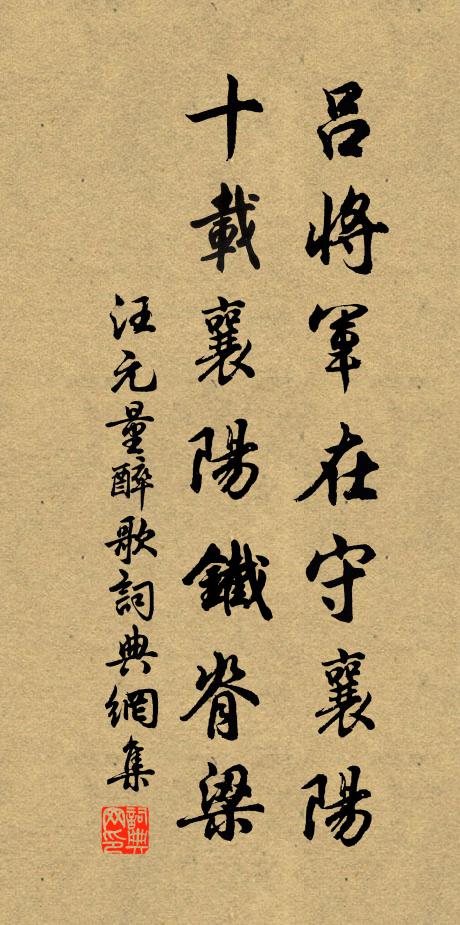 吕將軍在守襄陽
十載襄陽鐵脊梁
汪元量醉歌詞典網集
詞典网印